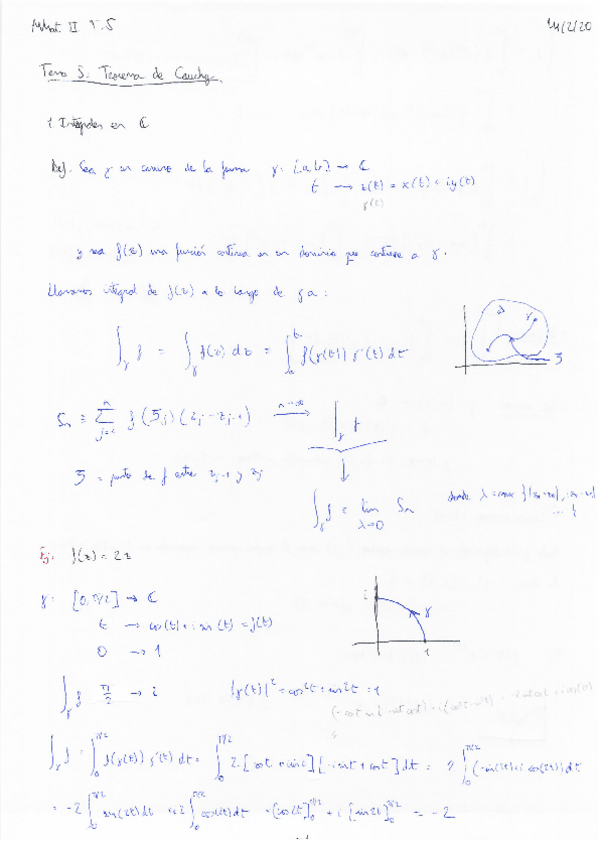 T.5
14/2/20
Tema 5: Teorema de Cauchy
1. Integrales en ℂ
Def. Sea γ un camino de la forma γ: [a,b] → ℂ
t → z(t) = x(t) + iy(t)
γ(t)
y sea f(z) una función continua en un dominio que contiene a γ.
Llamamos integral de f(z) a lo largo de γ a:
∫_γ f = ∫_γ f(z) dz = ∫ f(γ(t)) γ'(t) dt
γ
Sn ≡ Σ f(ζj)(zj - zj-1) → ∫_γ f
ζ = punto de γ entre zj-1 y zj
∫_γ f = lim_{λ→0} Sn
donde λ = max
Ej: f(z) = 2z
γ: [0, π/2] → ℂ
t → cos(t) + i sin(t) = γ(t)
0 → 1
i
γ
1
π/2 → i
|γ(t)|² = cos²t + sin²t = 1
∫_γ f = ∫_0^{π/2} f(γ(t)) γ'(t) dt = ∫_0^{π/2} 2·[cost + i sint][-sint + i cost] dt = 2 ∫_0^{π/2} (-sin(2t) + i cos(2t)) dt
= -2 ∫_0^{π/2} sin(2t) dt + i2 ∫_0^{π/2} cos(2t) dt = [cos 2t]_0^{π/2} + i [sin 2t]_0^{π/2} = -2